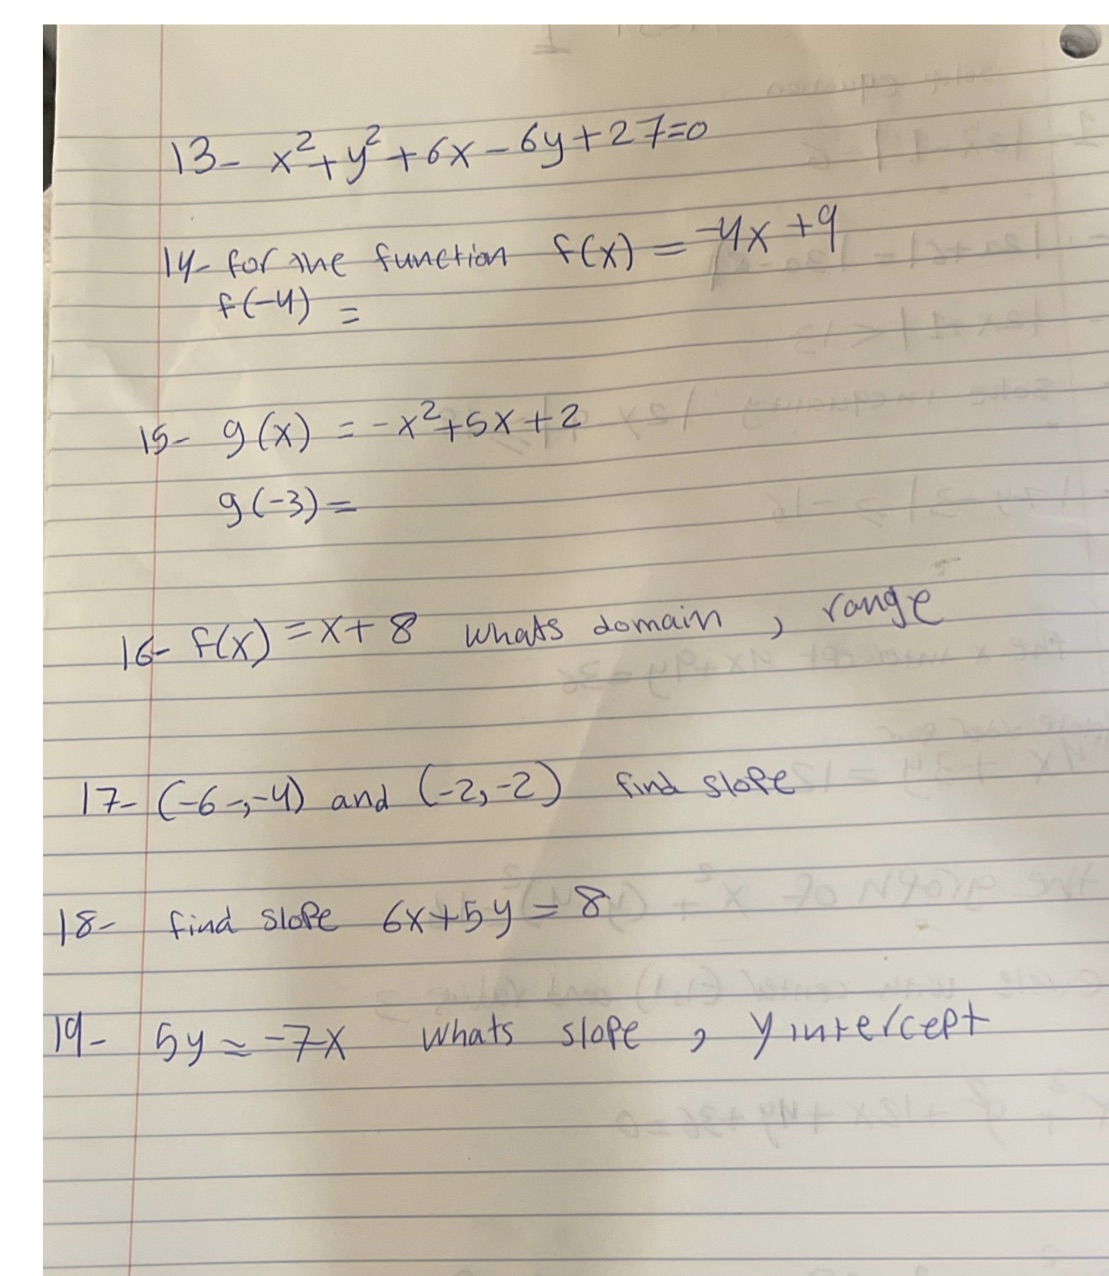 13- x²+y²+6x-6y+27=0
14- for the function f(x) = -4x+9
f(-4) =
15- g(x) = -x²+5x+2
g(-3)=
16- f(x)=x+8 whats domain, range
17- (-6-,-4) and (-2,-2) find slope
18- find slope 6x+5y=8
19- 5y=-7x whats slope, y intercept